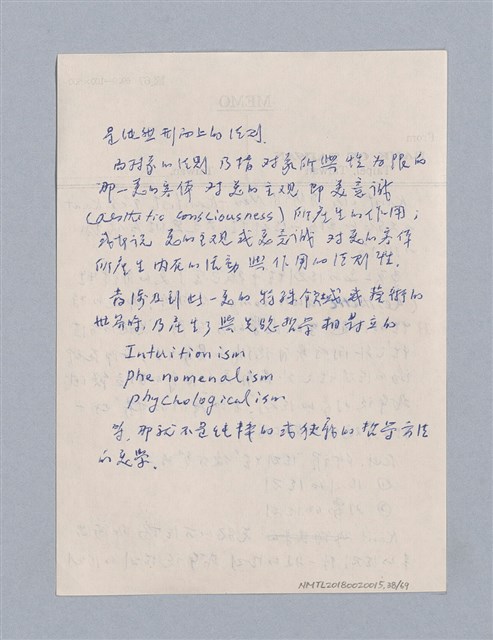 是純粹形而上的法則.
而对象的法則 乃指 对象所與性为限的
那一美的客体 对美的主观 即美意識
(aesthetic consciousness) 所產生的作用;
或者说 美的主观 或美意識 对美的客体
所產生 内在的活動 與 作用的法則性.
當涉及到此一美的特殊領域或藝術的
世界時, 乃產生了與先驗哲学相對立的
Intuitionism
phenomenalism
phychologicalism
等, 那就不是純粹的或狹義的哲学方法
的美学.
MEMO
NMTL20180020015, 38/69